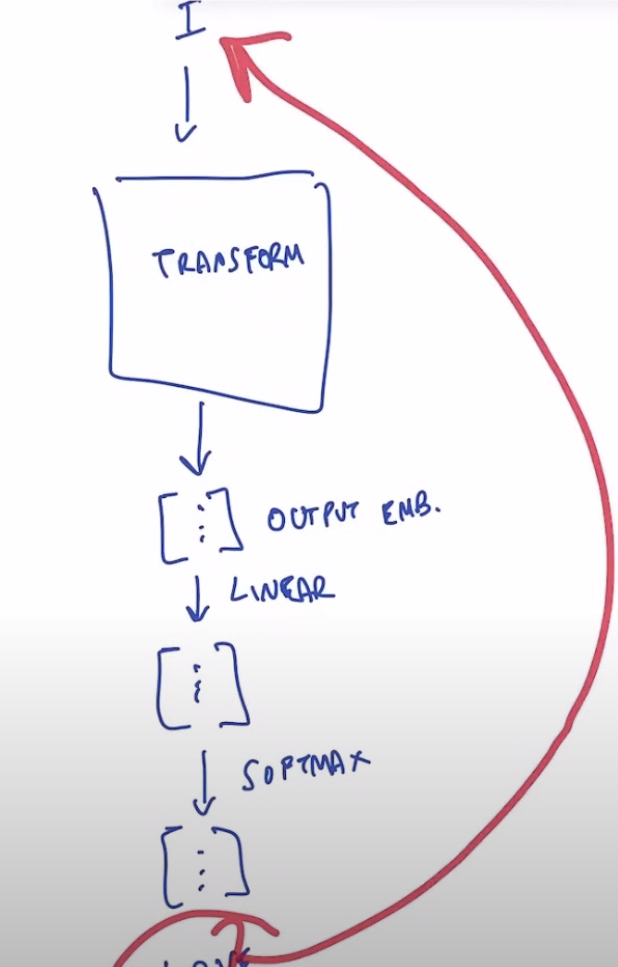 I
TRANSFORM
[⋮] OUTPUT EMB.
LINEAR
[⋮]
SOFTMAX
[⋮]